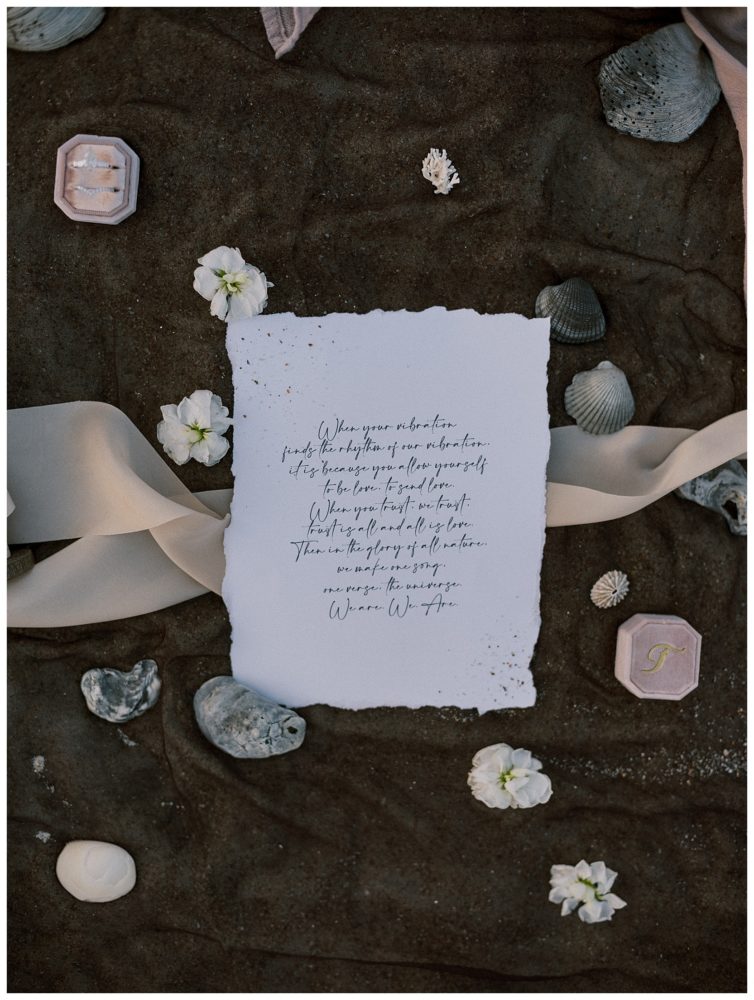 When your vibration
finds the rhythm of our vibration,
it is because you allow yourself
to be love, to send love.
When you trust, we trust,
trust is all and all is love.
Then in the glory of all nature,
we make one song,
one verse, the universe.
We are. We. Are.
T